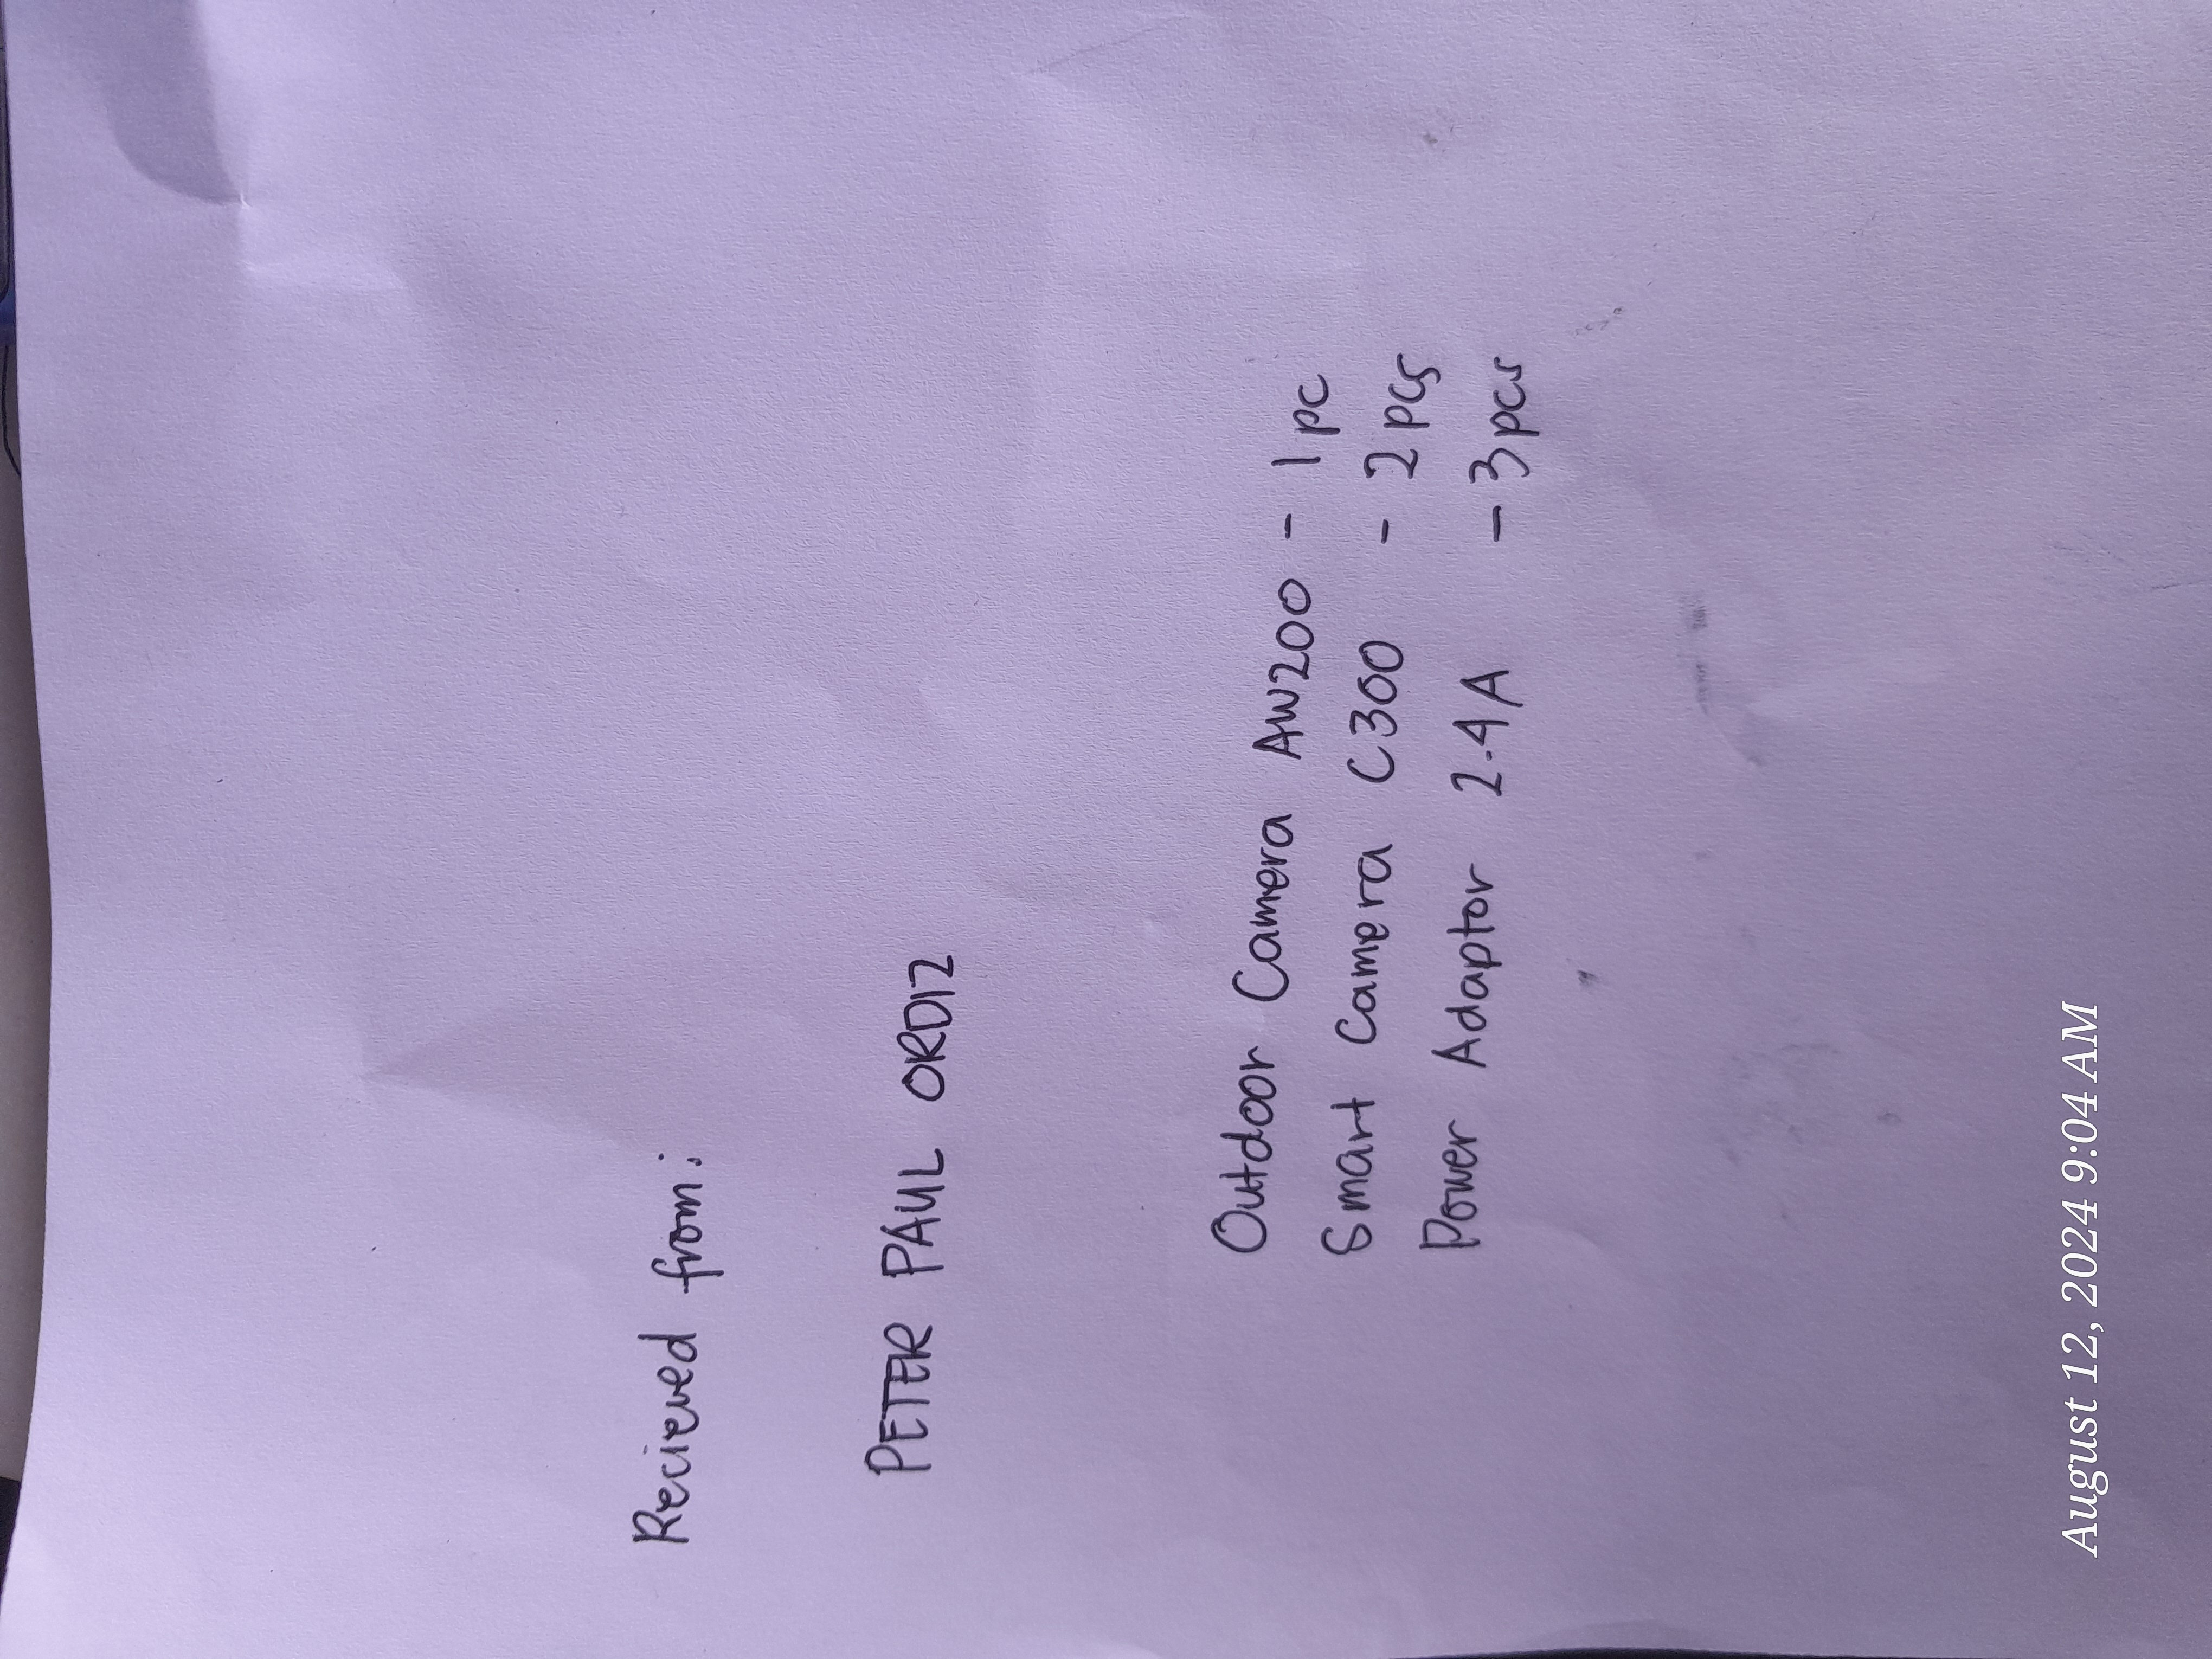 Recieved from:
PETER PAUL ORDIZ
Outdoor Camera AW200 - 1 pc
Smart Camera C300 - 2 pcs
Power Adaptor 2.4A - 3 pcs
August 12, 2024 9:04 AM